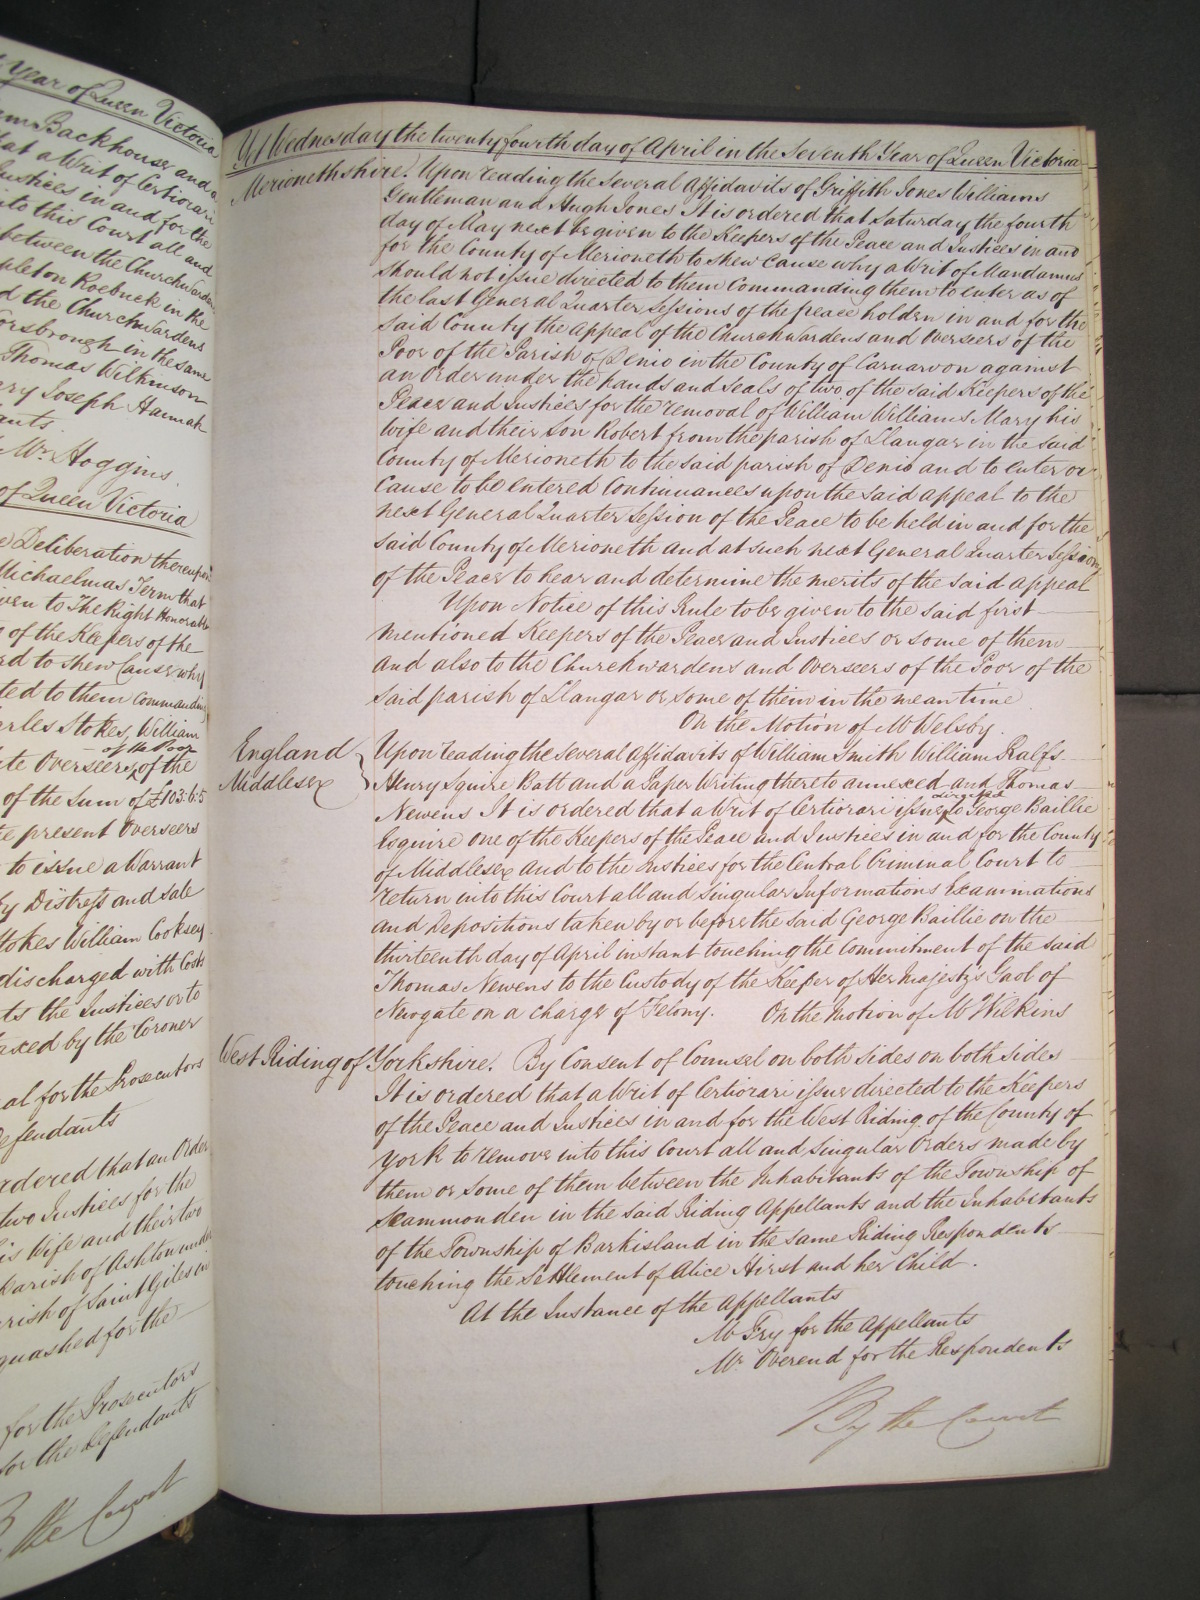 Year of Queen Victoria
Backhouse and
that a Writ of Certiorari
Justices in and for the
into this Court all and
between the Churchwardens
Roebuck in the
the Churchwardens
in the same
Thomas Wilkinson
Joseph Hannah
Mr. Hoggins.
of Queen Victoria
Deliberation thereupon
Michaelmas Term that
given to The Right Honorable
of the Keepers of the
to shew Cause why
to them commanding
Charles Stokes, William
of the Poor
Overseers of the
of the Sum of £103:6:5
present Overseers
to issue a Warrant
by Distress and Sale
Stokes William Cooksey
discharged with Costs
the Justices or to
taxed by the Coroner
for the Prosecutors
Defendants
ordered that an Order
two Justices for the
his Wife and their two
Parish of Ashton under
Parish of Saint Giles in
quashed for the
for the Prosecutors
for the Defendants
By the Court
Yet Wednesday the twenty fourth day of April in the Seventh Year of Queen Victoria
Merionethshire. Upon reading the several Affidavits of Griffith Jones Williams
Gentleman and Hugh Jones It is ordered that Saturday the fourth
day of May next be given to the Keepers of the Peace and Justices in and
for the County of Merioneth to shew cause why a Writ of Mandamus
should not issue directed to them Commanding them to enter as of
the last General Quarter Sessions of the peace holden in and for the
said County the appeal of the Churchwardens and Overseers of the
Poor of the Parish of Denio in the County of Carnarvon against
an Order under the hands and seals of two of the said Keepers of the
Peace and Justices for the removal of William Williams Mary his
wife and their son Robert from the parish of Llangar in the said
County of Merioneth to the said parish of Denio and to enter or
cause to be entered Continuances upon the said appeal to the
next General Quarter Session of the Peace to be held in and for the
said County of Merioneth and at such next General Quarter Sessions
of the Peace to hear and determine the merits of the said appeal
Upon Notice of this Rule to be given to the said first
mentioned Keepers of the Peace and Justices or some of them
and also to the Churchwardens and Overseers of the Poor of the
said parish of Llangar or some of them in the mean time
On the Motion of Mr Welsby.
England } Upon reading the several Affidavits of William Smith William Ralfs
Middlesex } Henry Squire Batt and a Paper Writing thereto annexed and Thomas
directed
Newens It is ordered that a Writ of Certiorari issue to George Baillie
Esquire one of the Keepers of the Peace and Justices in and for the County
of Middlesex and to the Justices for the Central Criminal Court to
return into this Court all and singular Informations Examinations
and Depositions taken by or before the said George Baillie on the
thirteenth day of April instant touching the commitment of the said
Thomas Newens to the Custody of the Keeper of Her Majesty's Gaol of
Newgate on a charge of Felony. On the Motion of Mr Wilkins
West Riding of Yorkshire. By Consent of Counsel on both sides on both sides
It is ordered that a Writ of Certiorari issue directed to the Keepers
of the Peace and Justices in and for the West Riding of the County of
York to remove into this Court all and singular Orders made by
them or some of them between the Inhabitants of the Township of
Scammonden in the said Riding Appellants and the Inhabitants
of the Township of Barkisland in the same Riding Respondents
touching the Settlement of Alice Hirst and her Child.
At the Instance of the Appellants
Mr Fry for the Appellants
Mr. Overend for the Respondents
By the Court